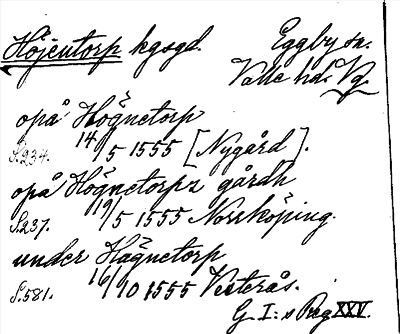 Höjentorp kgsgd. Eggby sn.
Valle hd. Vg.
opå Högnetorp
S.234. 14/5 1555 [Nygård].
opå Högnetorpz gårdh
S.237. 19/5 1555 Norrköping.
under Högnetorp
S.581. 16/10 1555 Vesterås.
G. I:s Reg XXV.